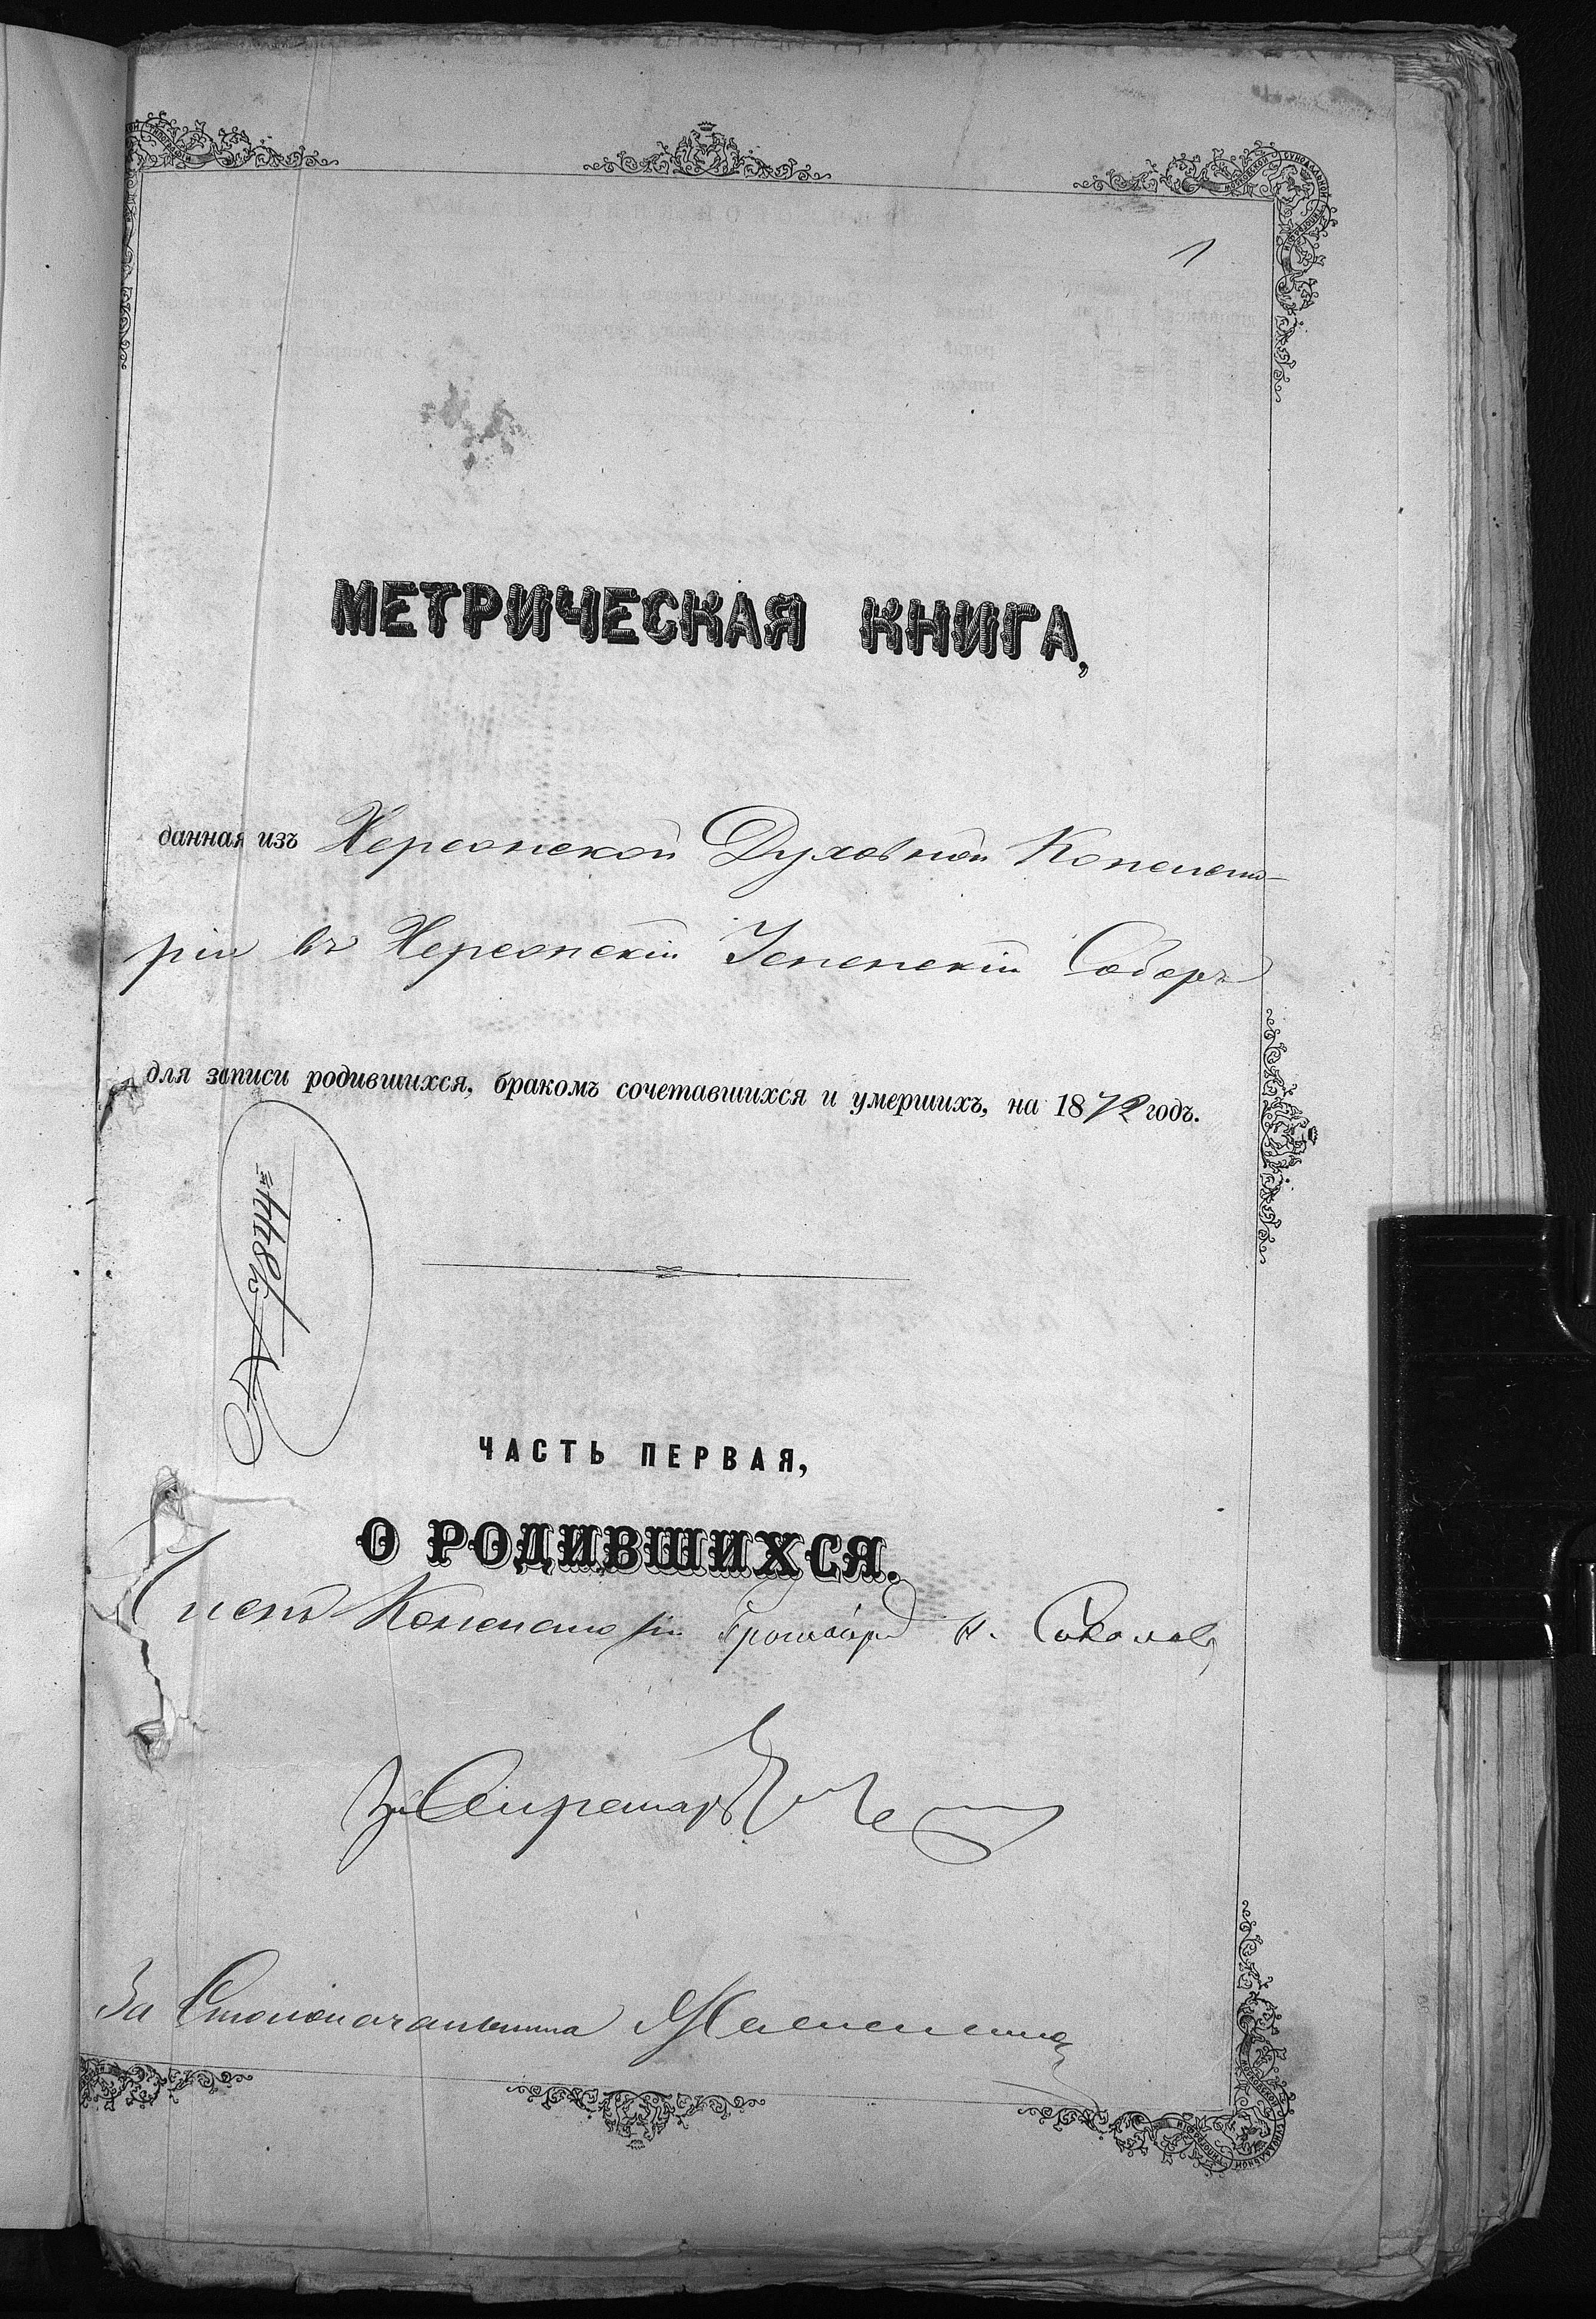 1
МЕТРИЧЕСКАЯ КНИГА,
данная изъ Херсонской Духовной Консисто-
ріи въ Херсонскій Успенскій Соборъ
для записи родившихся, бракомъ сочетавшихся и умершихъ, на 1872 годъ.
ЧАСТЬ ПЕРВАЯ,
О РОДИВШИХСЯ.
Членъ Консисторіи Протоіерей Н. Соколовъ
За Секретаря
За Столоначальника
МОСКОВСКОЙ СѴНОДАЛЬНОЙ ТИПОГРАФІИ